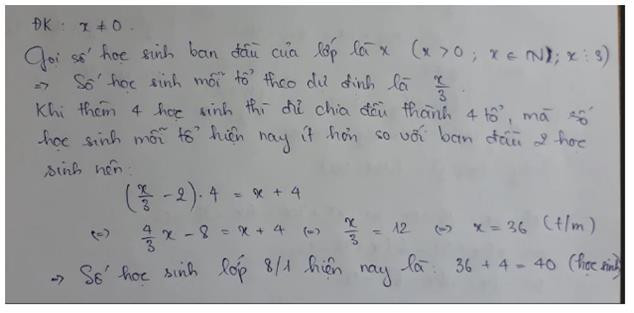 ĐK : x ≠ 0.
Gọi số học sinh ban đầu của lớp là x (x > 0 ; x ∈ N ; x ⋮ 3)
=> Số học sinh mỗi tổ theo dự định là x/3.
Khi thêm 4 học sinh thì để chia đều thành 4 tổ, mà số
học sinh mỗi tổ hiện nay ít hơn so với ban đầu 2 học
sinh nên:
(x/3 - 2) . 4 = x + 4
(=) 4/3 x - 8 = x + 4 (=) x/3 = 12 (=) x = 36 (t/m)
=> Số học sinh lớp 8/1 hiện nay là: 36 + 4 = 40 (học sinh)